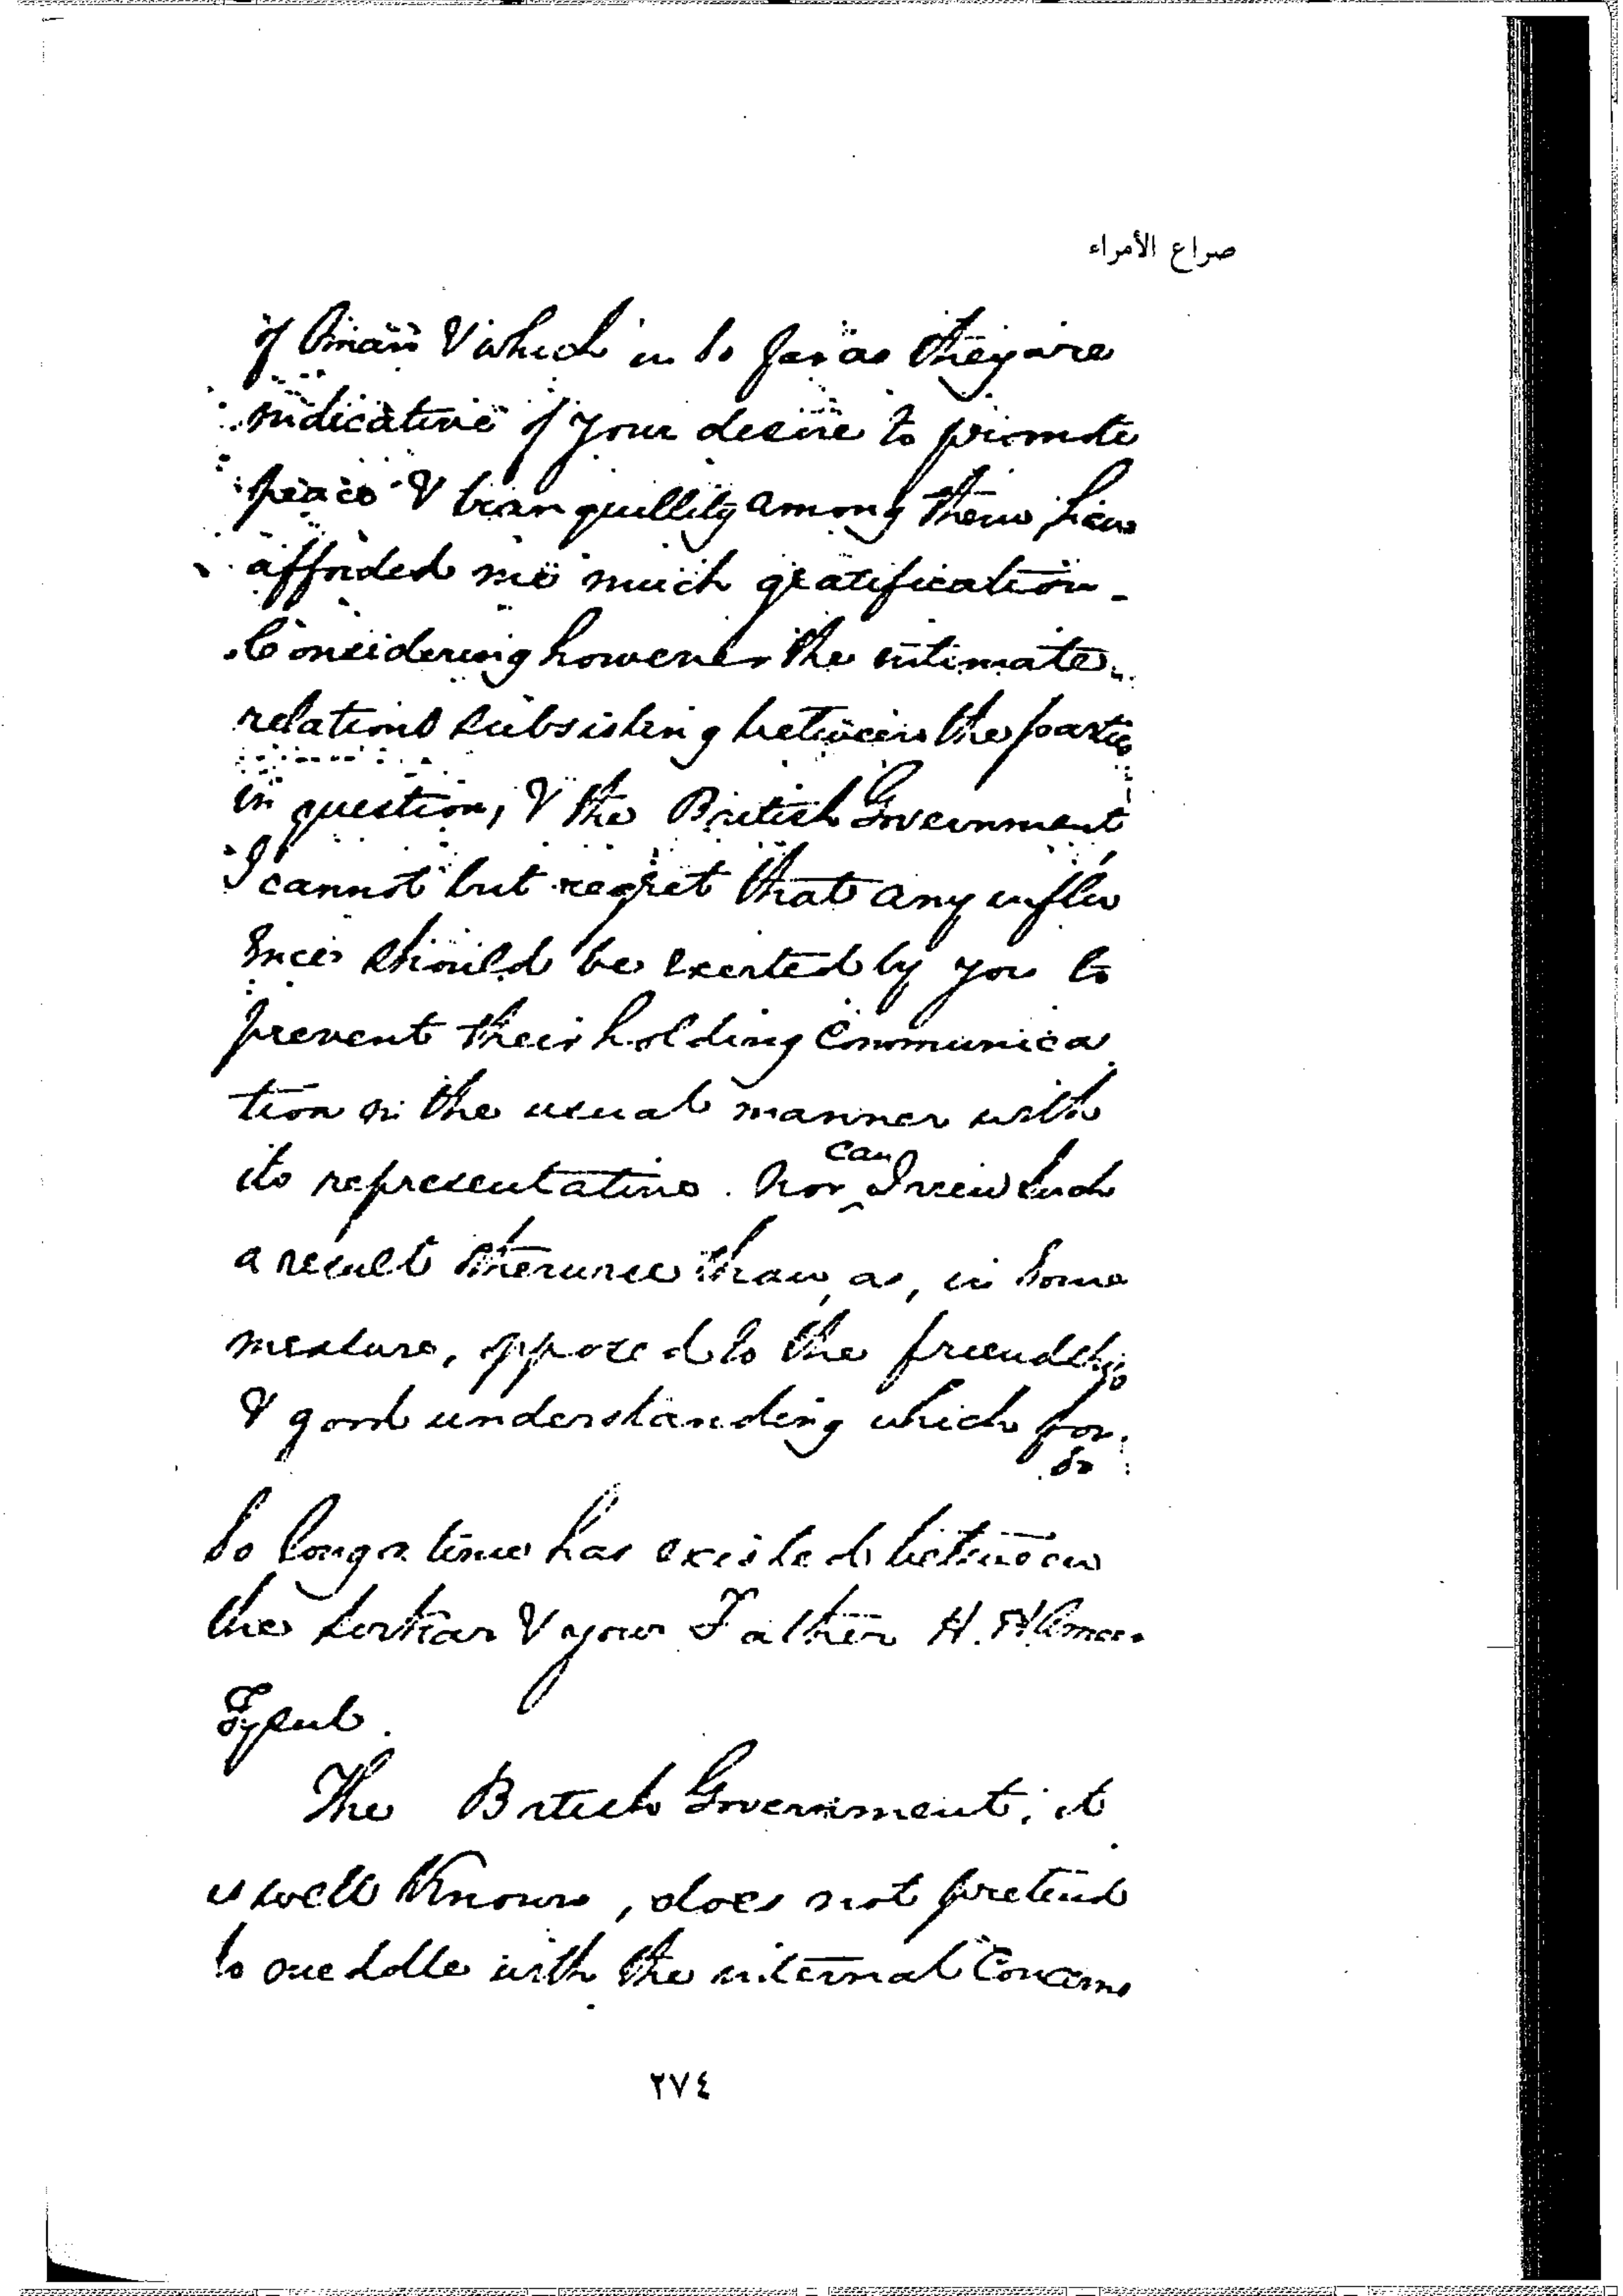 صراع الأمراء
of Oman & which in so far as they are
indicative of your desire to promote
peace & tranquillity among them have
afforded me much gratification -
Considering however the intimate
relations subsisting between the parties
in question, & the British Government
I cannot but regret that any influ
ence should be exerted by you to
prevent their holding communica
tion in the usual manner with
its representative. Nor can I view such
a result otherwise than, as, in some
measure, opposed to the friendship
& good understanding which for
so
so long a time has existed between
the Sirkar & your Father H. H. Ameer
Syeud.
The British Government, it
is well known, does not pretend
to meddle with the internal concerns
٢٧٤